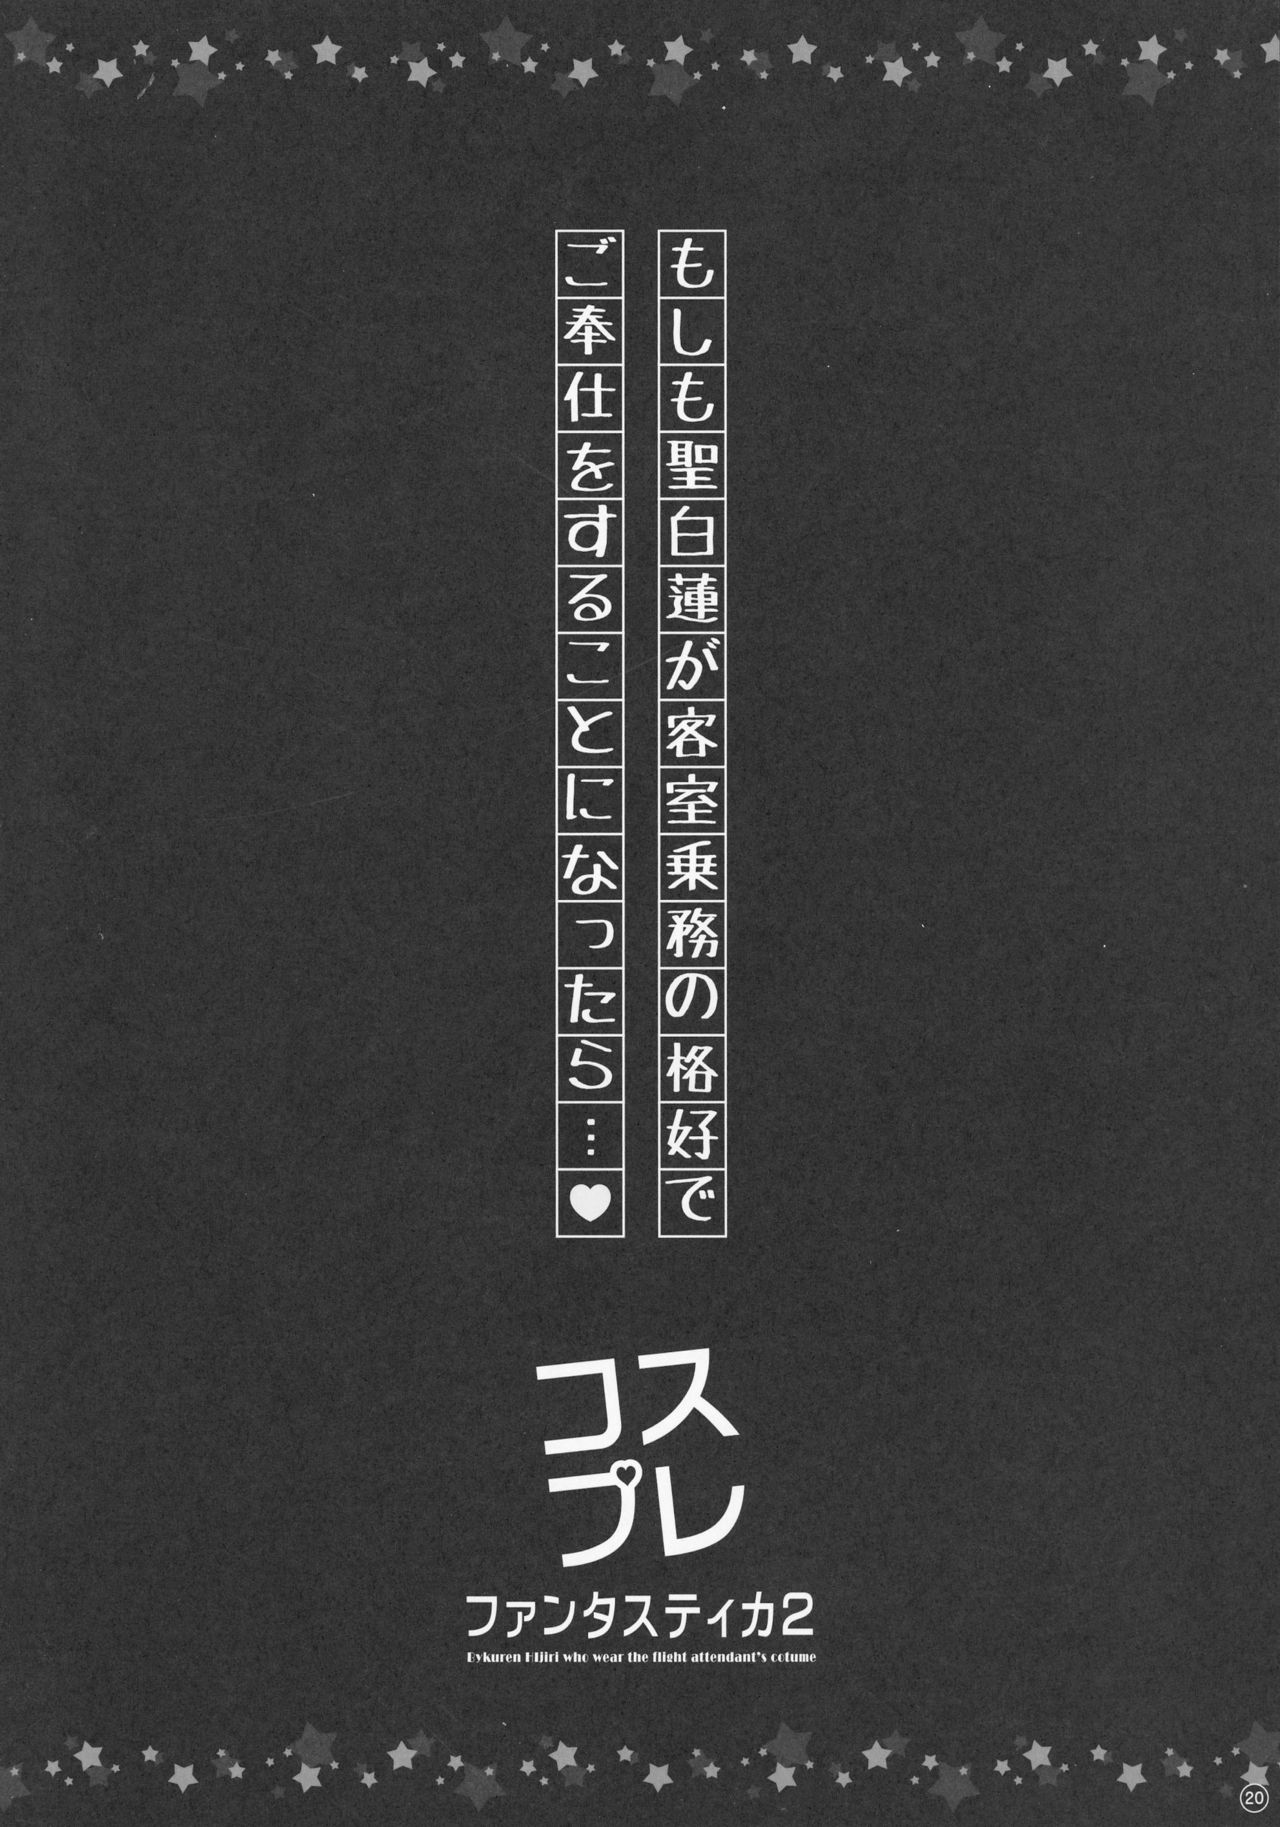 もしも聖白蓮が客室乗務の格好で
ご奉仕をすることになったら…♥
コス
プレ
ファンタスティカ2
Bykuren HIjiri who wear the flight attendant's cotume
20